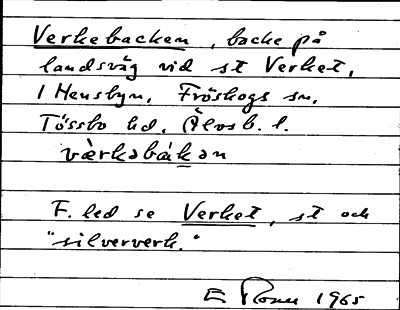 Verkebacken, backe på
landsväg vid st Verket,
i Hensbyn, Fröskogs sn,
Tössbo hd, Älvsb. l.
værkəbàkən
F. led se Verket, st och
"silververk."
E 1965